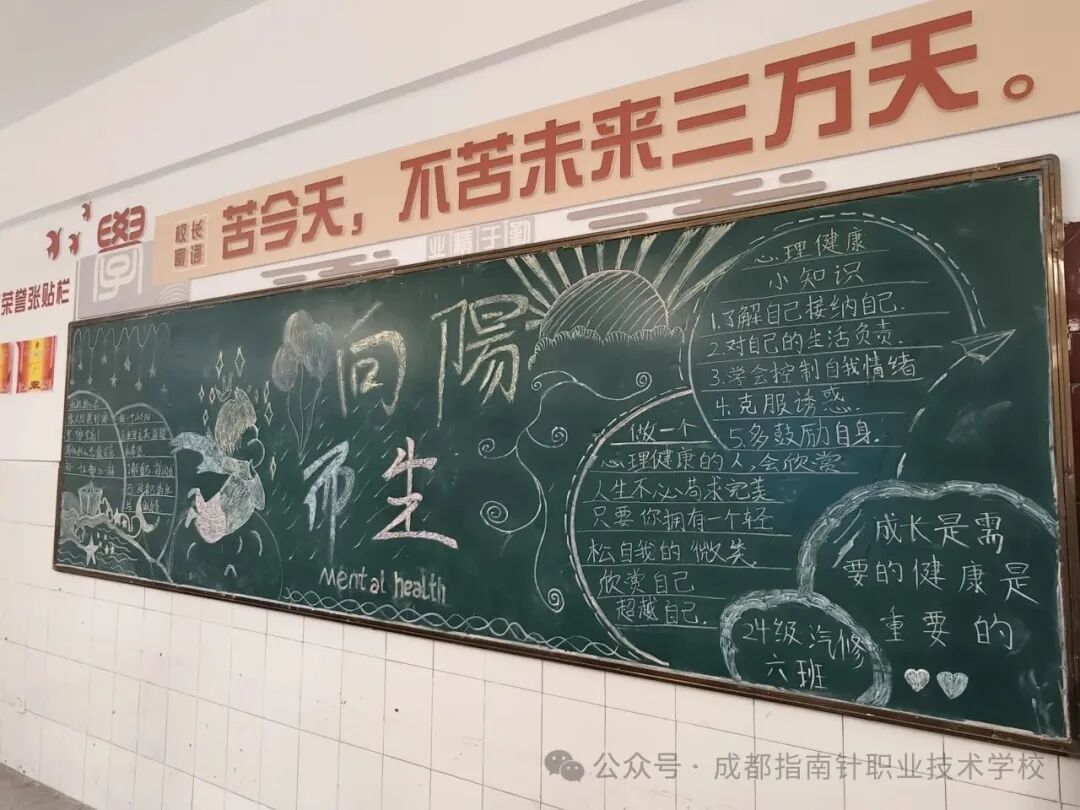 苦今天，不苦未来三万天。
校长
寄语
學
学
业精于勤
荣誉张贴栏
向陽
而生
mental health
心理健康
小知识
1.了解自己接纳自己.
2.对自己的生活负责.
3.学会控制自我情绪
4.克服诱惑.
5.多鼓励自身.
做一个
心理健康的人,会欣赏
人生不必苟求完美
只要你拥有一个轻
松自我的微笑
欣赏自己
超越自己.
成长是需
要的健康是
重要的
24级汽修
六班
公众号·成都指南针职业技术学校